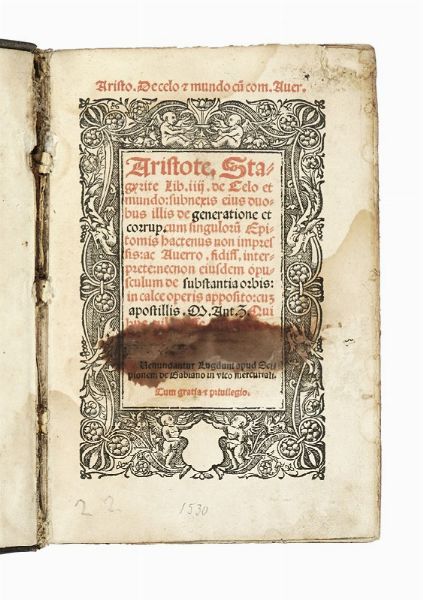 Aristo. De celo ⁊ mundo cũ com. Auer.
Aristote. Sta-
gyrite Lib. iiij. de Celo et
mundo: subnexis eius duo-
bus illis de generatione et
corrup. cum singulorũ Epi
tomis hactenus non impres
sis: ac Auerro. fidiss. inter-
prete: necnon eiusdem opu
sculum de substantia orbis:
in calce operis apposito: cuʒ
apostillis. M. Ant. Z Qui
Uenundantur Lugduni apud Sci
pionem de Gabiano in vico mercuriali.
Cum gratia ⁊ priuilegio.
2 2
1530